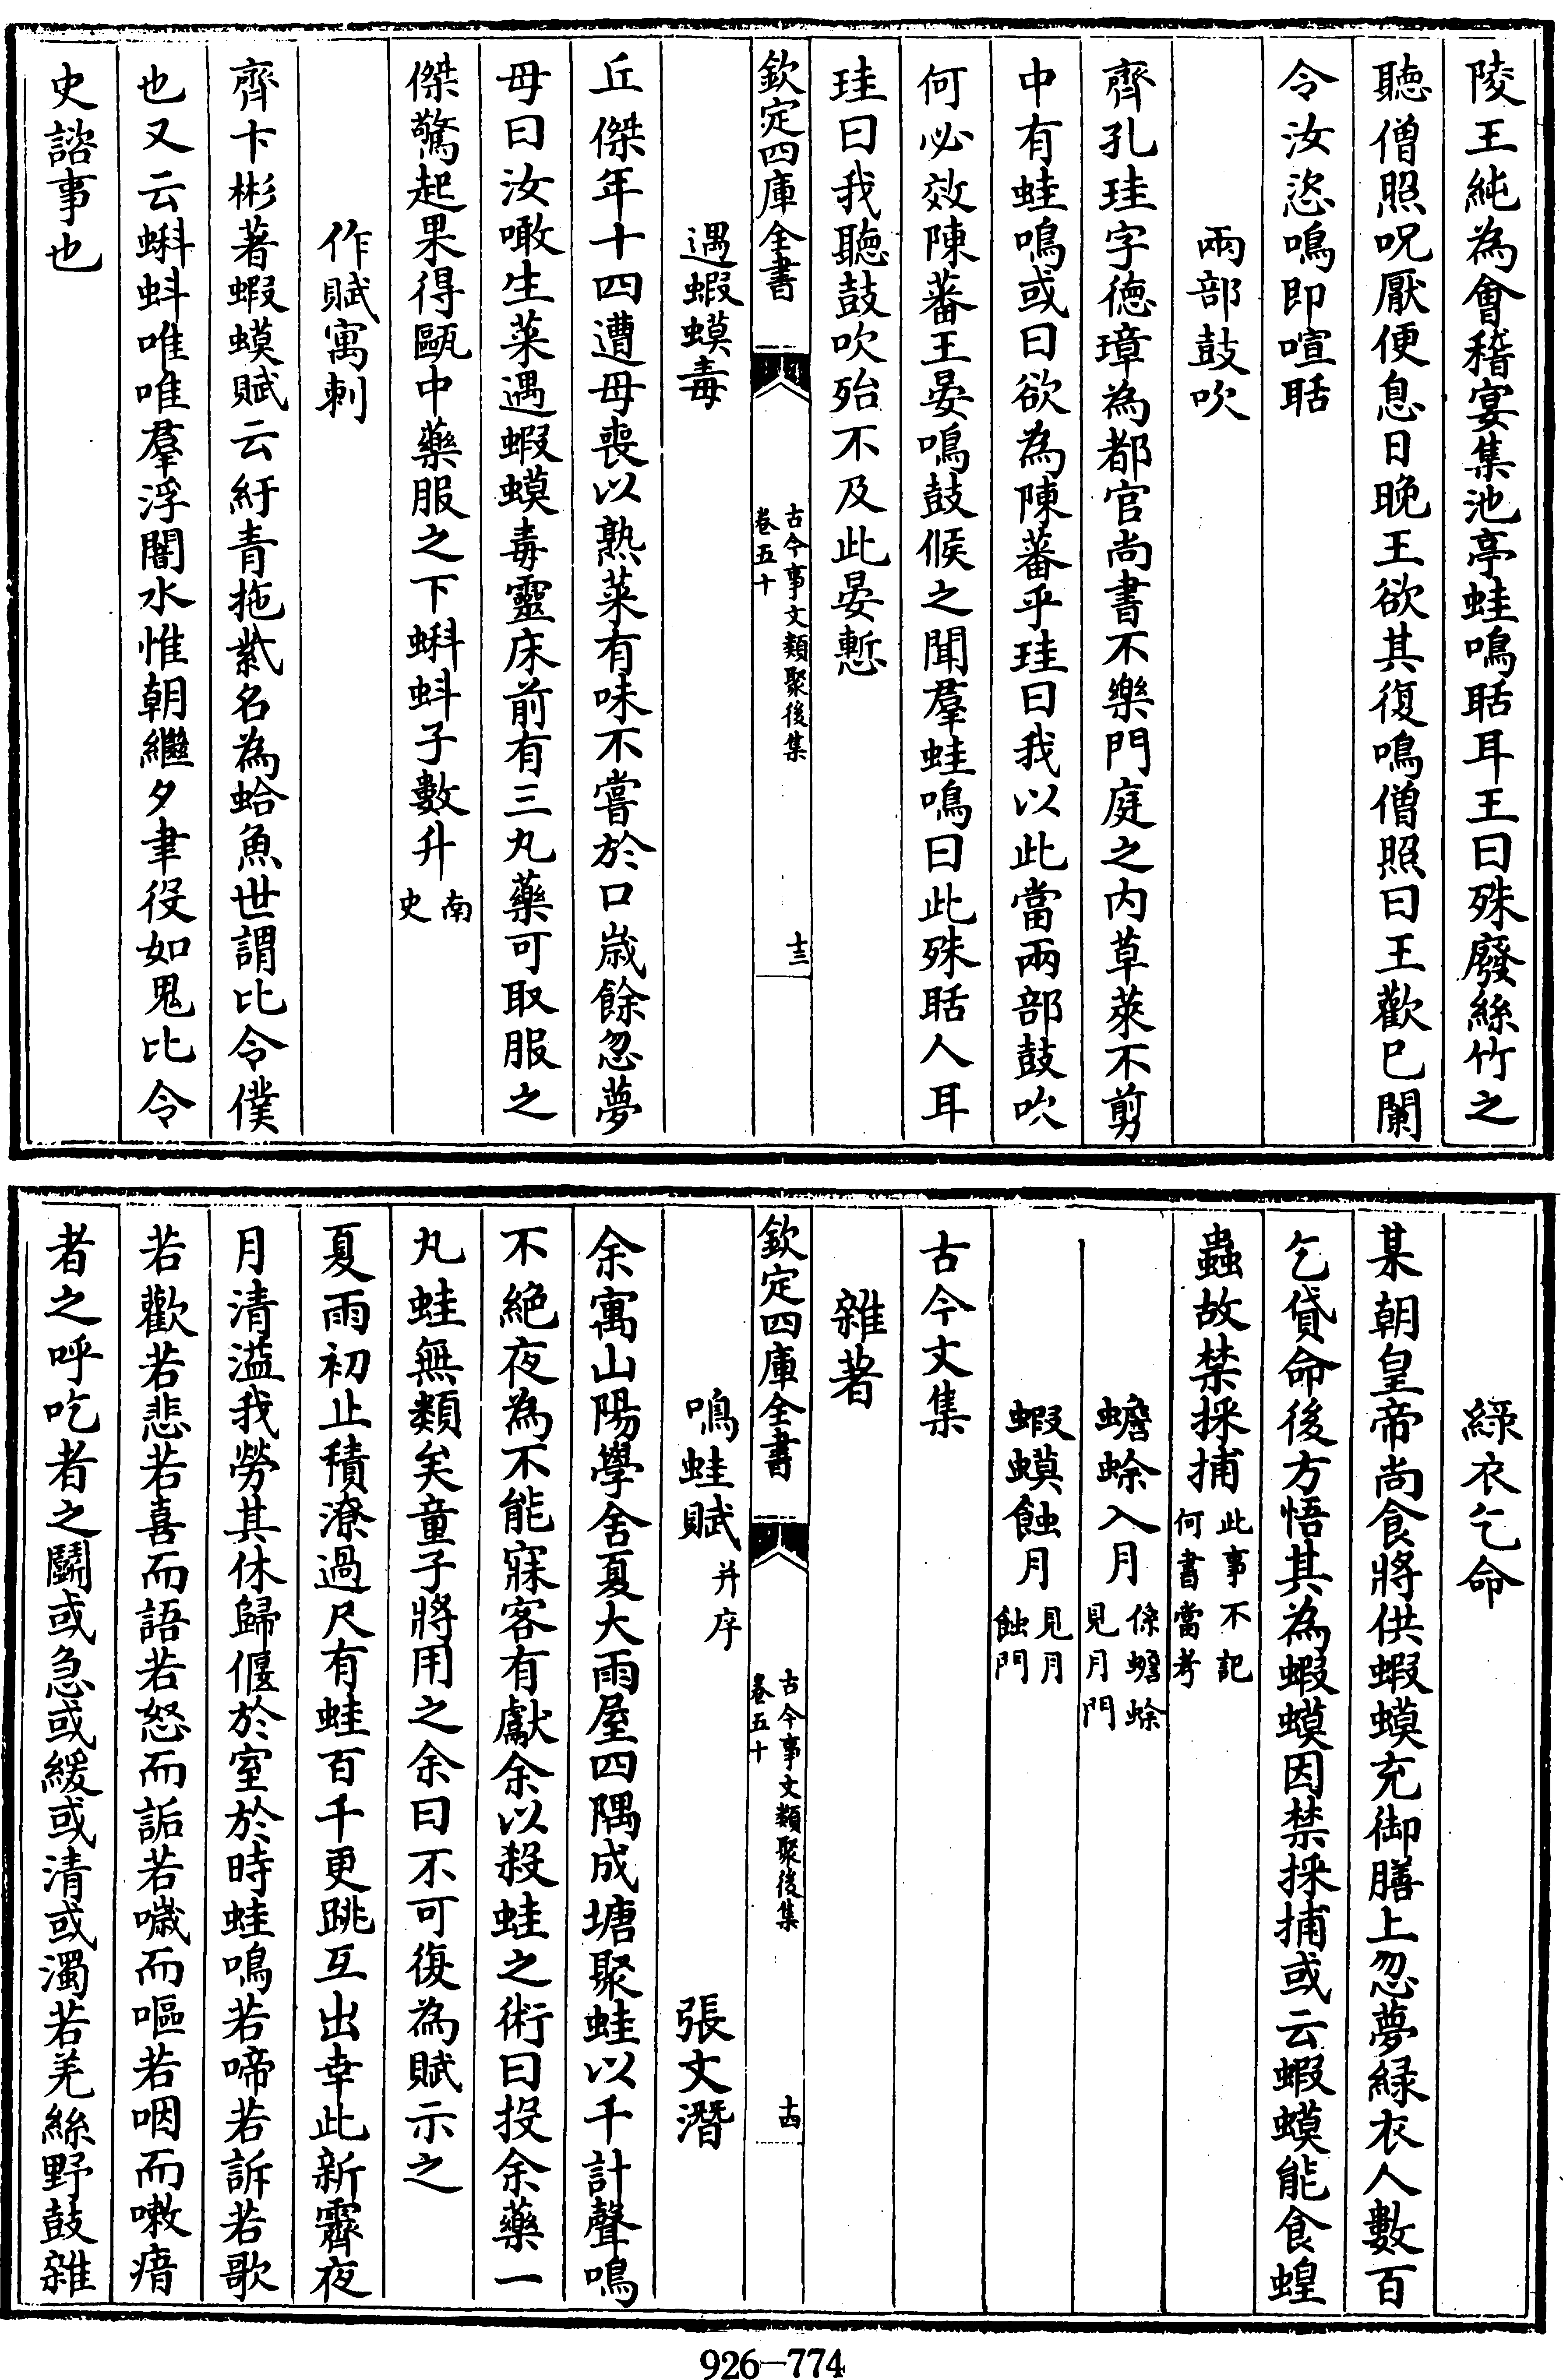 陵王純為會稽宴集池亭蛙鳴聒耳王曰殊廢絲竹之
聽僧照呪厭便息日晚王欲其復鳴僧照曰王歡已闌
令汝恣鳴即喧聒
兩部鼓吹
齊孔珪字德璋為都官尚書不樂門庭之内草萊不剪
中有蛙鳴或曰欲為陳蕃乎珪曰我以此當兩部鼓吹
何必效陳蕃王晏鳴鼓候之聞羣蛙鳴曰此殊聒人耳
珪曰我聽鼓吹殆不及此晏慙
欽定四庫全書
古今事文類聚後集
卷五十
十三
遇蝦蟆毒
丘傑年十四遭母喪以熟菜有味不嘗於口歲餘忽夢
母曰汝噉生菜遇蝦蟆毒靈床前有三丸藥可取服之
傑驚起果得甌中藥服之下蝌蚪子數升南史
作賦寓刺
齊卞彬著蝦蟆賦云紆青拖紫名為蛤魚世謂比令僕
也又云蝌蚪唯唯羣浮闇水惟朝繼夕聿役如鬼比令
史諮事也
綠衣乞命
某朝皇帝尚食將供蝦蟆充御膳上忽夢緑衣人數百
乞貸命後方悟其為蝦蟆因禁採捕或云蝦蟆能食蝗
蟲故禁採捕此事不記何書當考
蟾蜍入月係蟾蜍見月門
蝦蟆蝕月見月蝕門
古今文集
雜著
欽定四庫全書
古今事文類聚後集
卷五十
十四
鳴蛙賦并序 張文潛
余寓山陽學舍夏大雨屋四隅成塘聚蛙以千計聲鳴
不絕夜為不能寐客有獻余以殺蛙之術曰投余藥一
丸蛙無類矣童子將用之余曰不可復為賦示之
夏雨初止積潦過尺有蛙百千更跳互出幸此新霽夜
月清溢我勞其休歸偃於室於時蛙鳴若啼若訴若歌
若歡若悲若喜而語若怒而詬若噦而嘔若咽而嗽瘖
者之呼吃者之鬭或急或緩或清或濁若羌絲野鼓雜
926-774